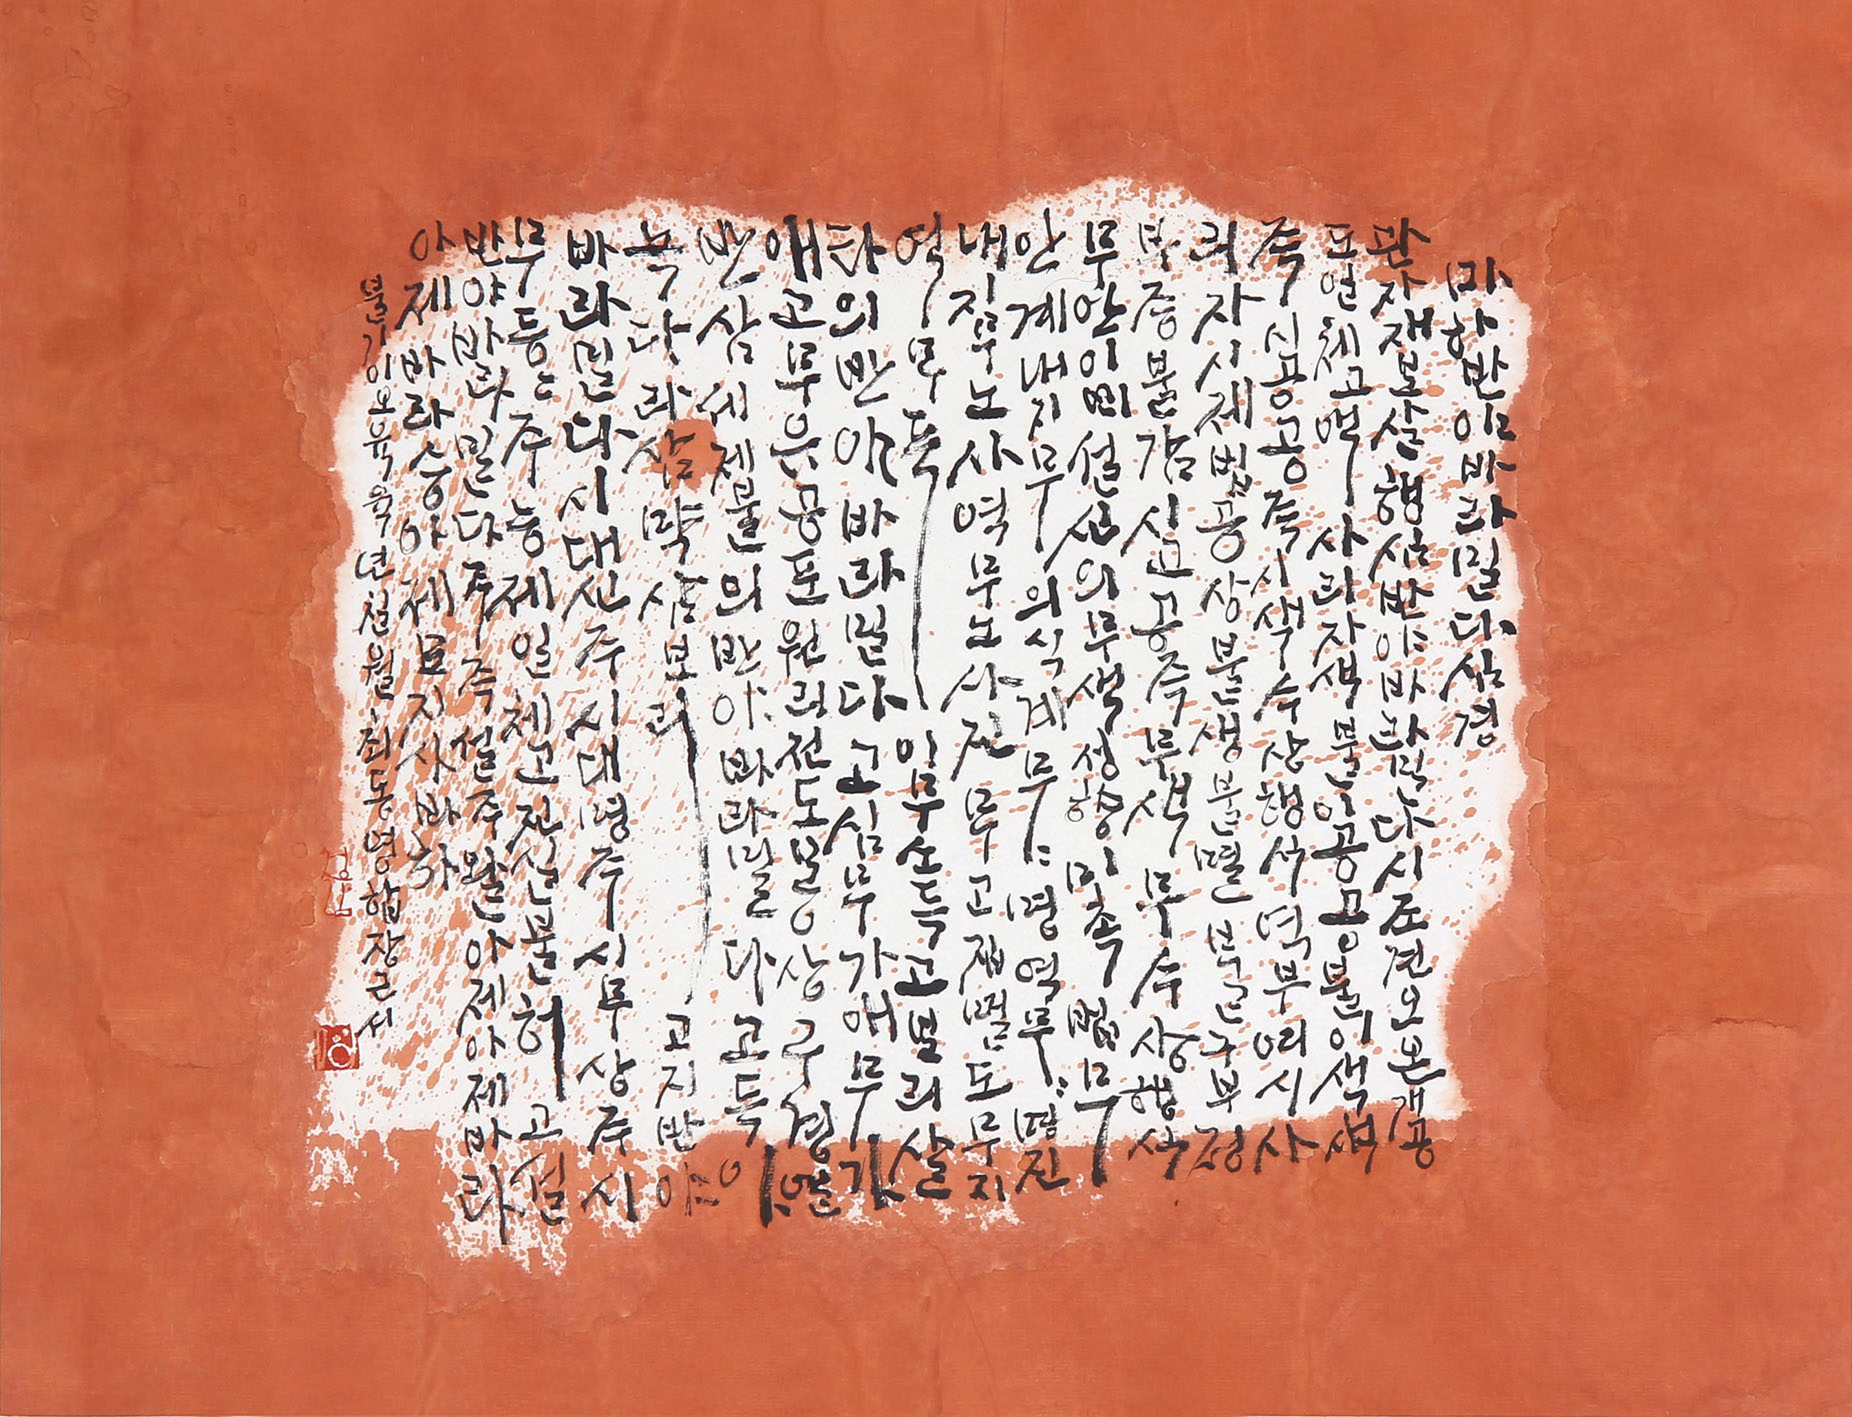 마하반야바라밀다심경
관자재보살행심반야바라밀다시조견오온개공
도일체고액사리자색불이공공불이색색
즉시공공즉시색수상행식역부여시사
리자시제법공상불생불멸불구부정
부증불감시고공중무색무수상행식
무안이비설신의무색성향미촉법무
안계내지무의식계무〃명역무〃명진
내지무노사역무노사진무고집멸도무지
역무득이무소득고보리살
타의반야바라밀다고심무가애무가
애고무유공포원리전도몽상구경열
반삼세제불의반야바라밀다고득아
녹다라삼먁삼보리고지반야
바라밀다시대신주시대명주시무상주시
무등〃주능제일체고진실불허고설
반야바라밀다주즉설주왈아제아제바라
아제바라승아제모지사바하
불기이오육육년칠월최동명합장근서